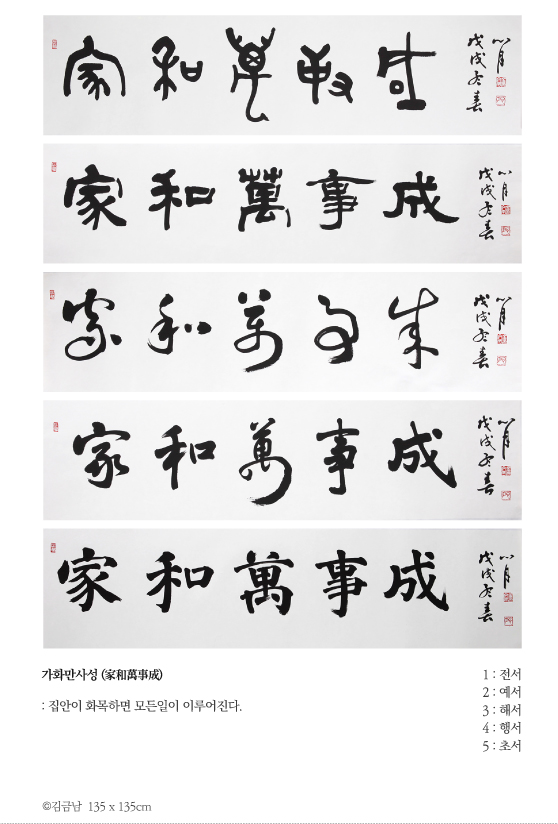 家和萬事成
戊戌
家和萬事成
戊戌
家和萬事成
戊戌
家和萬事成
戊戌
家和萬事成
戊戌
가화만사성 (家和萬事成)
: 집안이 화목하면 모든일이 이루어진다.
1 : 전서
2 : 예서
3 : 해서
4 : 행서
5 : 초서
©김금남 135 x 135cm